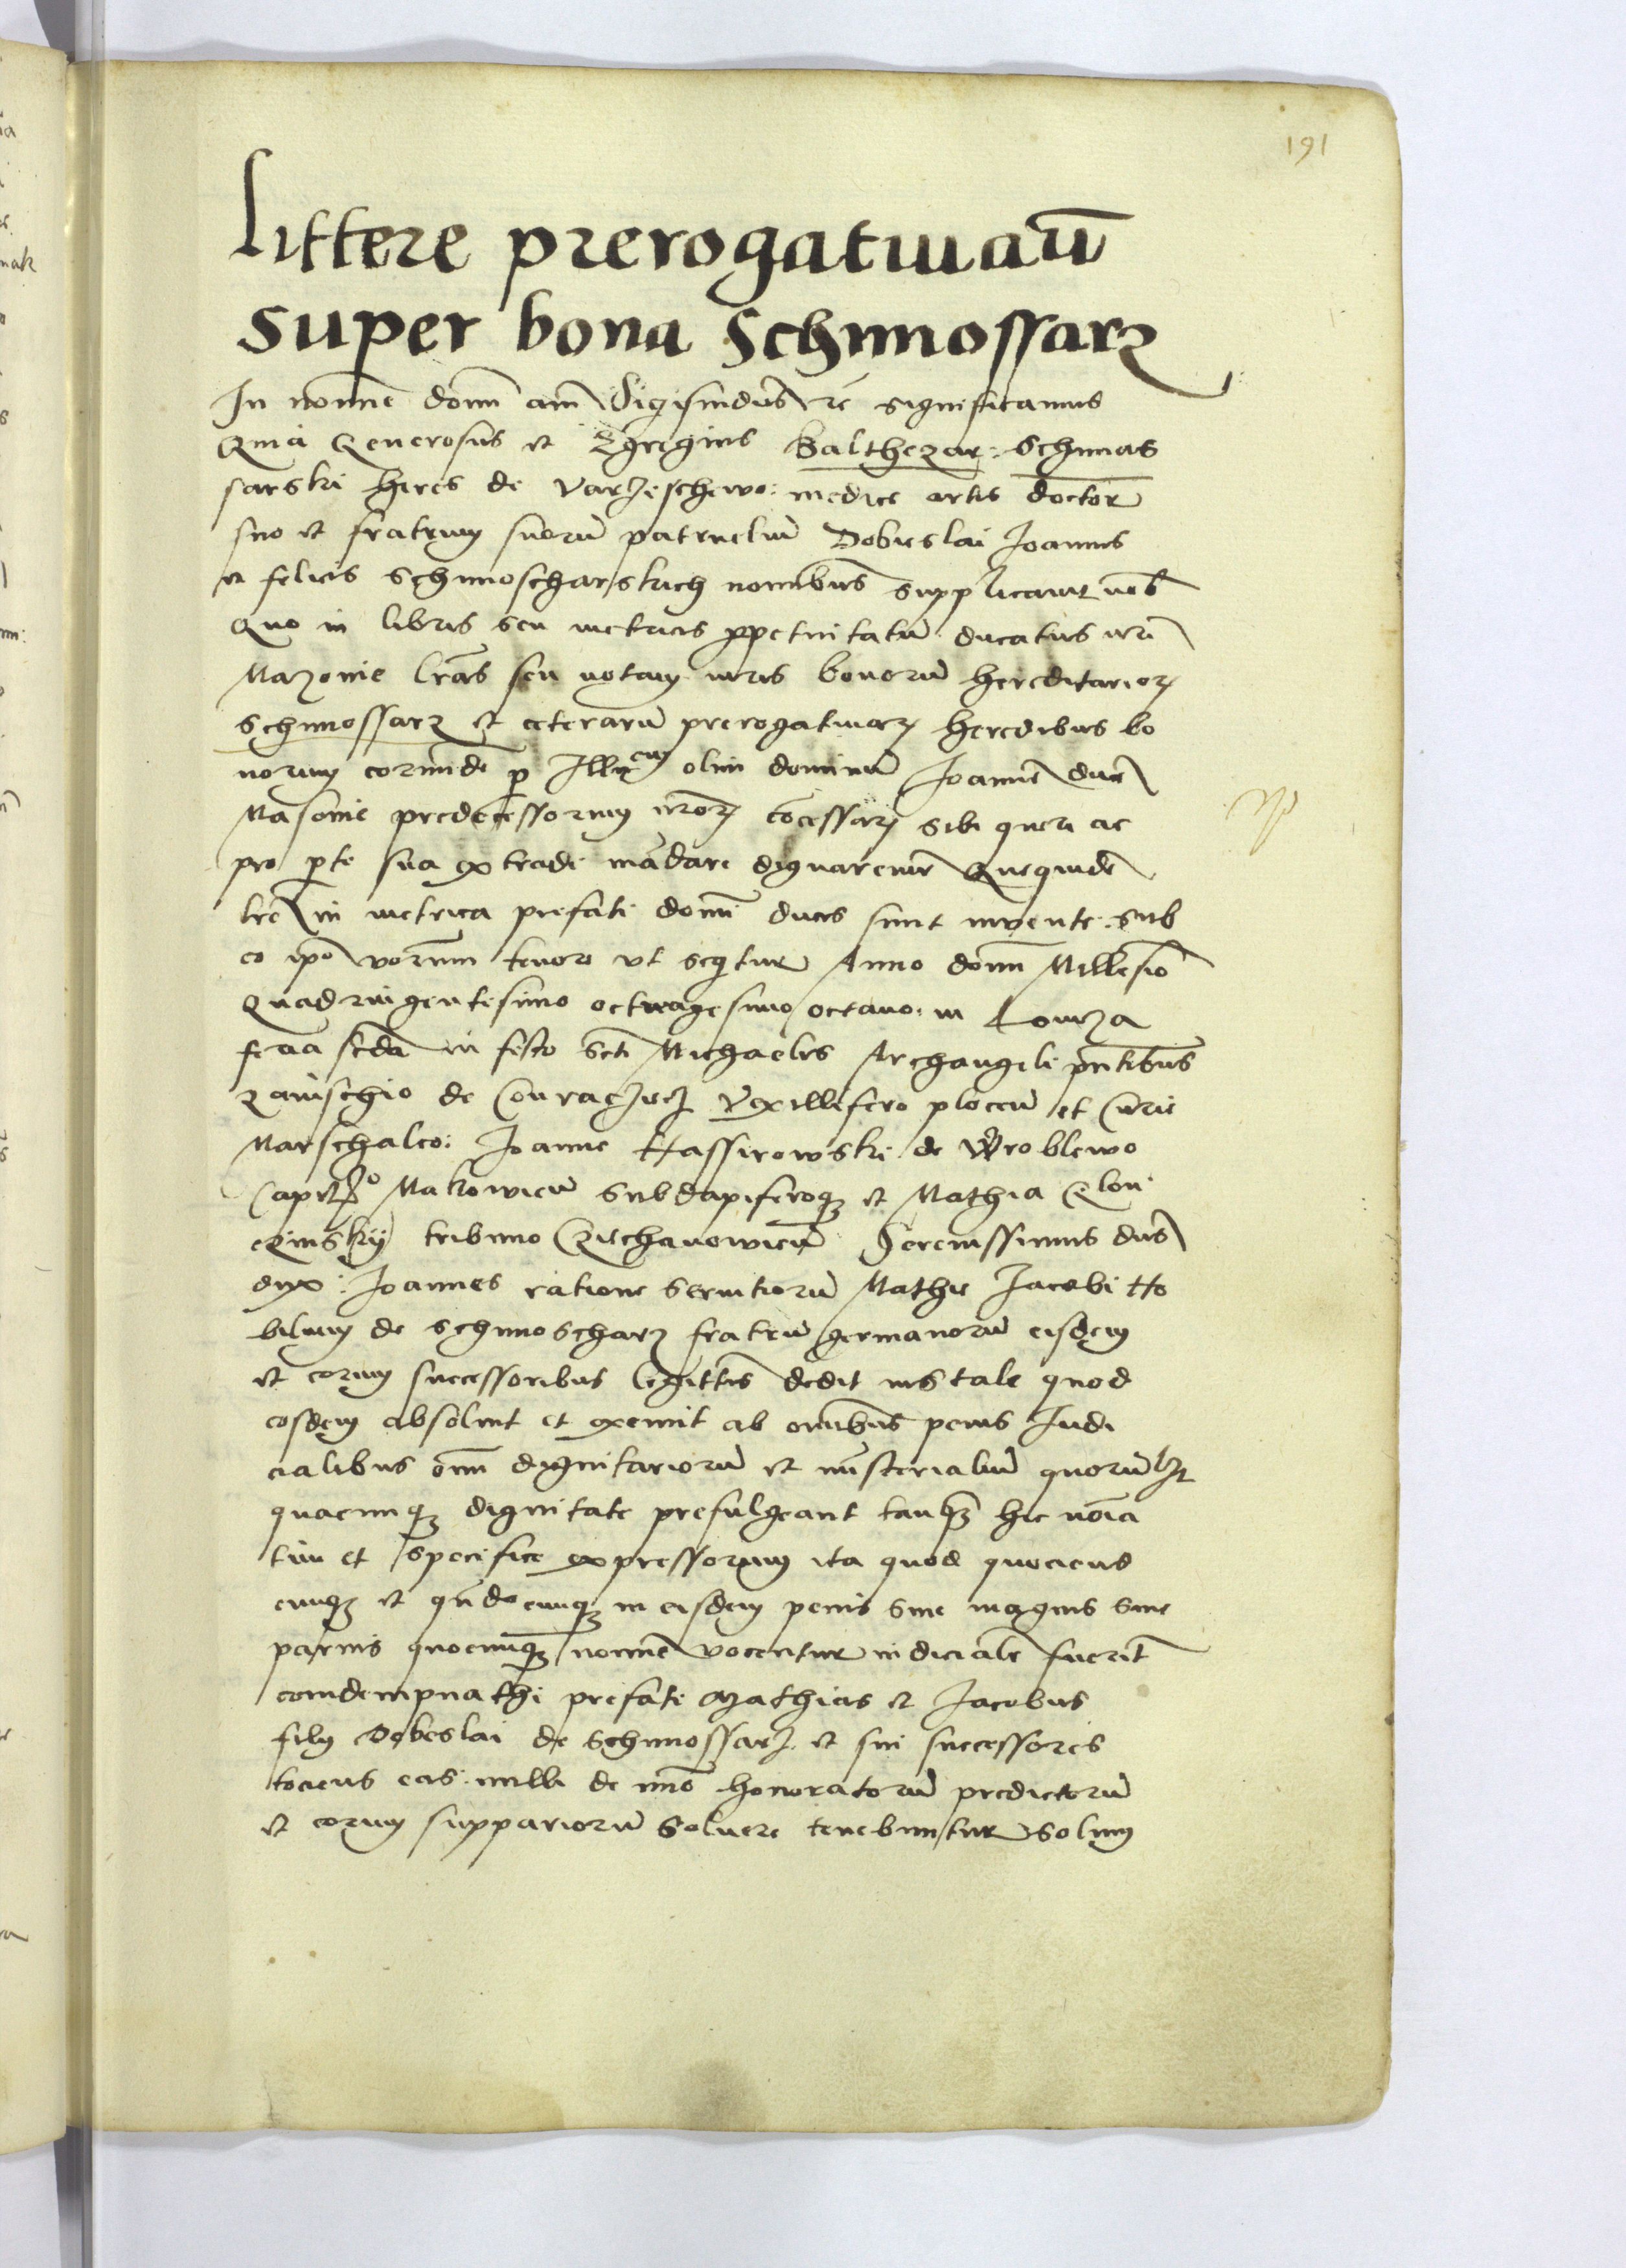 191
Littere prerogatiuaū
super bona Schmossarz
In noīne domī amē Sigismdus rē significamus
Quia Generosus et Egregius Balthezar: Schmas
sarski heres de Varzeschewo: medice artis doctor
suo et fratrum suorū patrueliū Dobieslai Joannis
et felicis Schmoscharskich noībus supplicauit nob
Quo in libris seu metricis ppetuitatū ducatus nrī
Mazouie lras seu notam iuris bonorū hereditarioꝝ
Schmossarz et ceterarū prerogatiuaꝝ heredibus bo
norum eorundē p Illꝫem olim dominū Joannē ducē
Masouie predecessorum nroꝝ cōcessaꝝ sibi queri ac
pro pte sua extradi mādare dignaremr Quequidē
lre in metrica prefati domī ducis sunt inuente sub
eo ipo vorum tenore vt seqitur Anno domī Millesīo
Quadringentesimo octuagesimo octauo: in Lomza
feria scda in festo Scti Michaelis Archangeli pntibus
zauischio de Vexillifero plocen et Curie
Marschalco: Joanne Nassirowski de Wroblewo
Capito Makowien subdapiferoqꝫ et Mathia Glou
czinskij tribuno Cziechanowien Serenissimus dūs
dux: Joannes ratione seruitiorū Mathie Jacobi No
bilium de Schmoscharz fratrū germanorū eisdem
et eorum successoribus legittīs dedit ius tale quod
eosdem absoluit et exemit ab omībus penis Judi
cialibus omī dignitariorū et mīsterialiū quorū lꝫ
quacunqꝫ dignitate prefulgeant tanqꝫ hic noīa
tim et specifice expressorum ita quod quociens
cunqꝫ et qn̄docunqꝫ in eisdem penis siue magnis siue
paruis quocunqꝫ nomīe vocentur iudicialr fuerīt
condempnathi prefati Mathias et Jacobus
filij Dobeslai de Schmossarz et sui successores
tociens eas nulli de imō honoratorū predictorū
et eorum suppariorū soluere tenebuntur solum